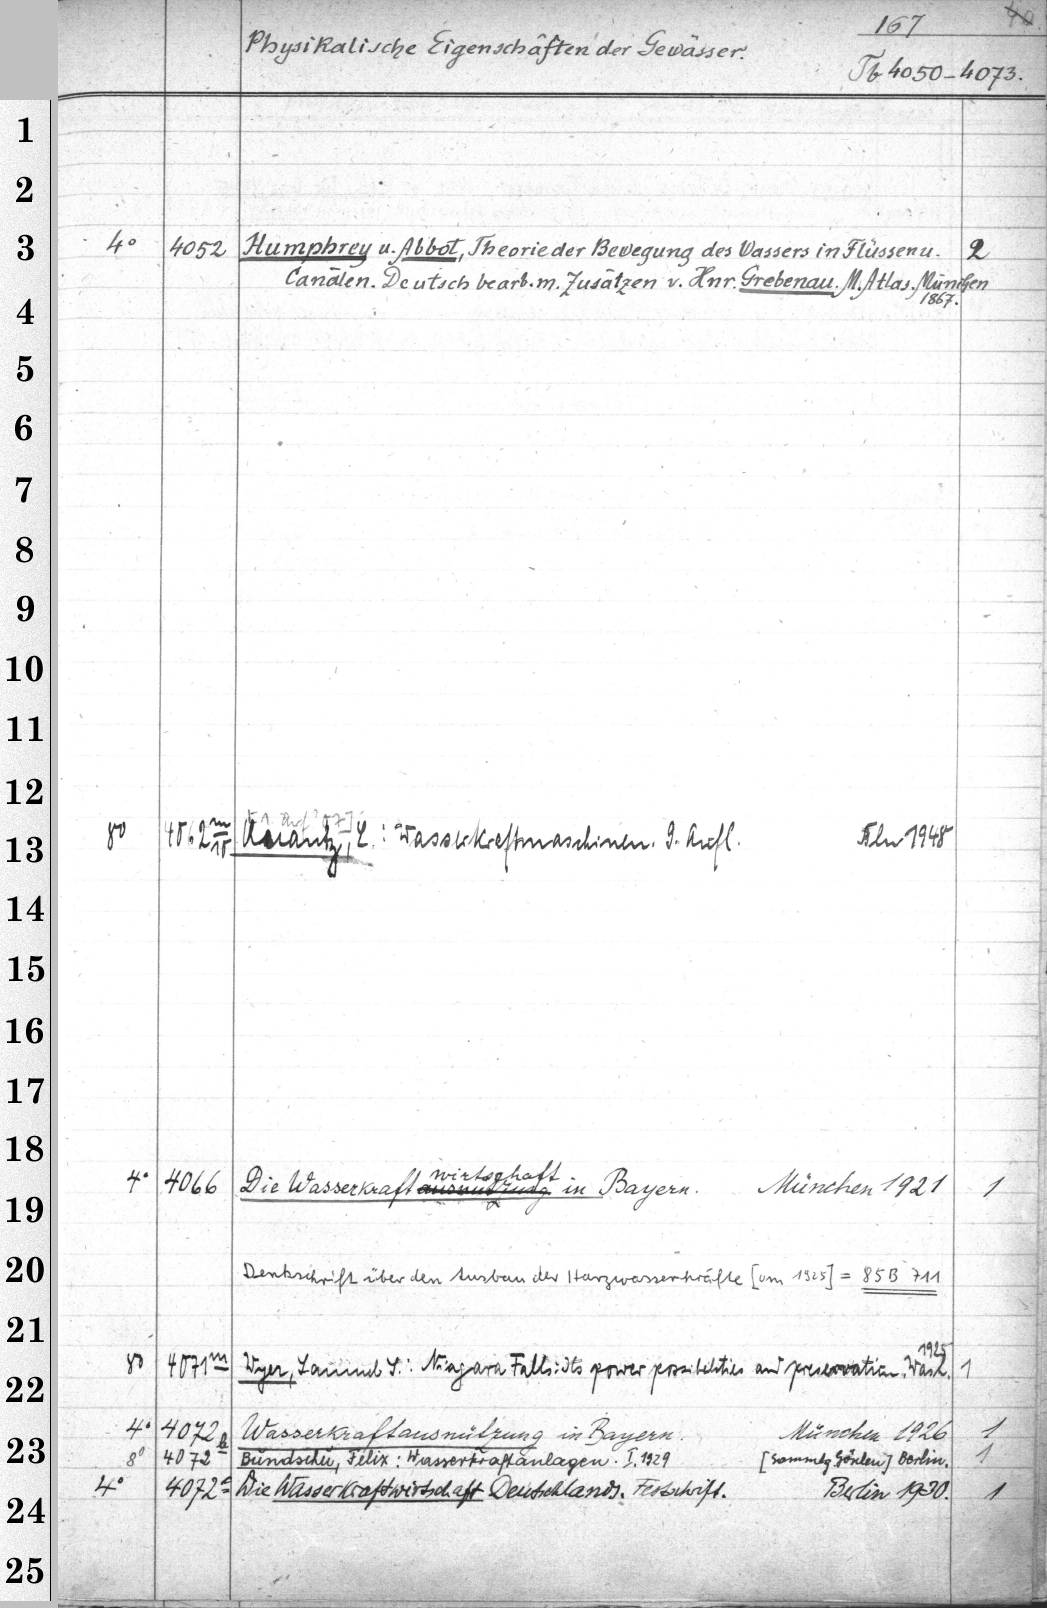 167
40.
Physikalische Eigenschaften der Gewässer.
Tb 4050-4073.
1
2
3
4° 4052 Humphrey u. Abbot, Theorie der Bewegung des Wassers in Flüssen u. 2
Canälen. Deutsch bearb. m. Zusätzen v. Hnr. Grebenau. M. Atlas. München
1867.
4
5
6
7
8
9
10
11
12
8° 4062 m L.: Wasserkraftmaschinen. 9. Aufl. 1948
13
14
15
16
17
18
wirtschaft
4° 4066 Die Wasserkraftausnutzung in Bayern. München 1921 1
19
20
Denkschrift über den Ausbau der Harzwasserkräfte [um 1925] = 85B 711
21
1925
8° 4071 m Wyer, Samuel S.: Niagara Falls: its power possibilities and preservation. Wash. 1
22
4° 4072 Wasserkraftausnützung in Bayern. München 1926 1
23
8° 4072 b Bundschu, Felix: Wasserkraftanlagen. I. 1929 [Sammlg Göschen] Berlin. 1
4° 4072 c Die Wasserkraftwirtschaft Deutschlands. Festschrift. Berlin 1930. 1
24
25